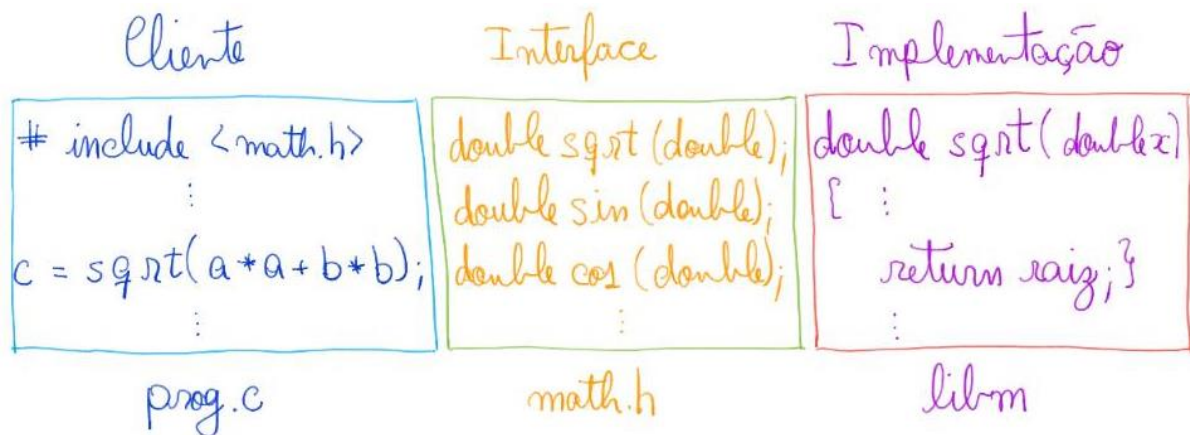 Cliente
# include <math.h>
⋮
c = sqrt(a*a+b*b);
⋮
prog.c
Interface
double sqrt (double);
double sin (double);
double cos (double);
⋮
math.h
Implementação
double sqrt( double x)
{ ⋮
return raiz; }
⋮
libm